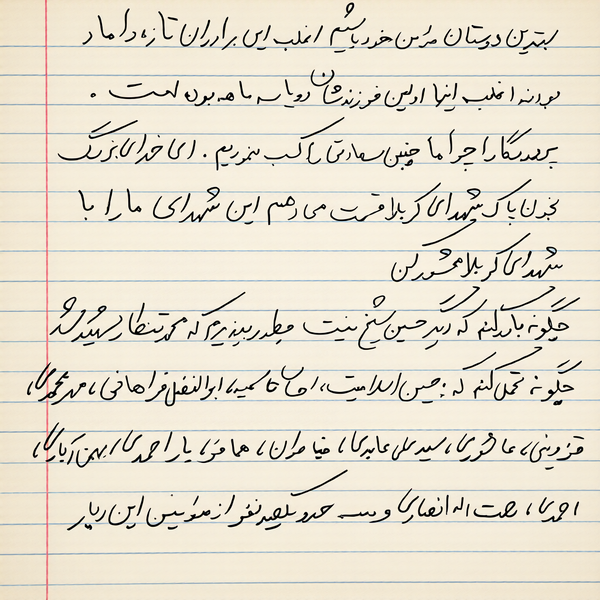 بهترین دوستان مراسن خود باشیم اغلب این برادران تازه داماد
بودند اغلب اینها اولین فرزندشان دو یا سه ماهه بوده است .
پروردگارا چرا ما چنین سعادتی را کسب ننموریم . ای خدای بزرگ
بخون پاک شهدای کربلا قسمت می دهم این شهدای ما را با
شهدای کربلا محشور کن
چگونه باور کنم که دیگر حسین شیخ نیست چطور بپذیرم که محمد تنطار شهید شد
چگونه تحمل کنم که : حسین اسلامیت، احسان قاسمیه، ابوالفضل فراهانی، مهر محمدی،
قزوینی، عاشوری، سید علی عابدی، ضیامران، همافر، یار احمدی، بهمن آبادی،
احمدی، رحمت اله انصاری و سه حدو یکصد نفر از مؤمنین این دیار